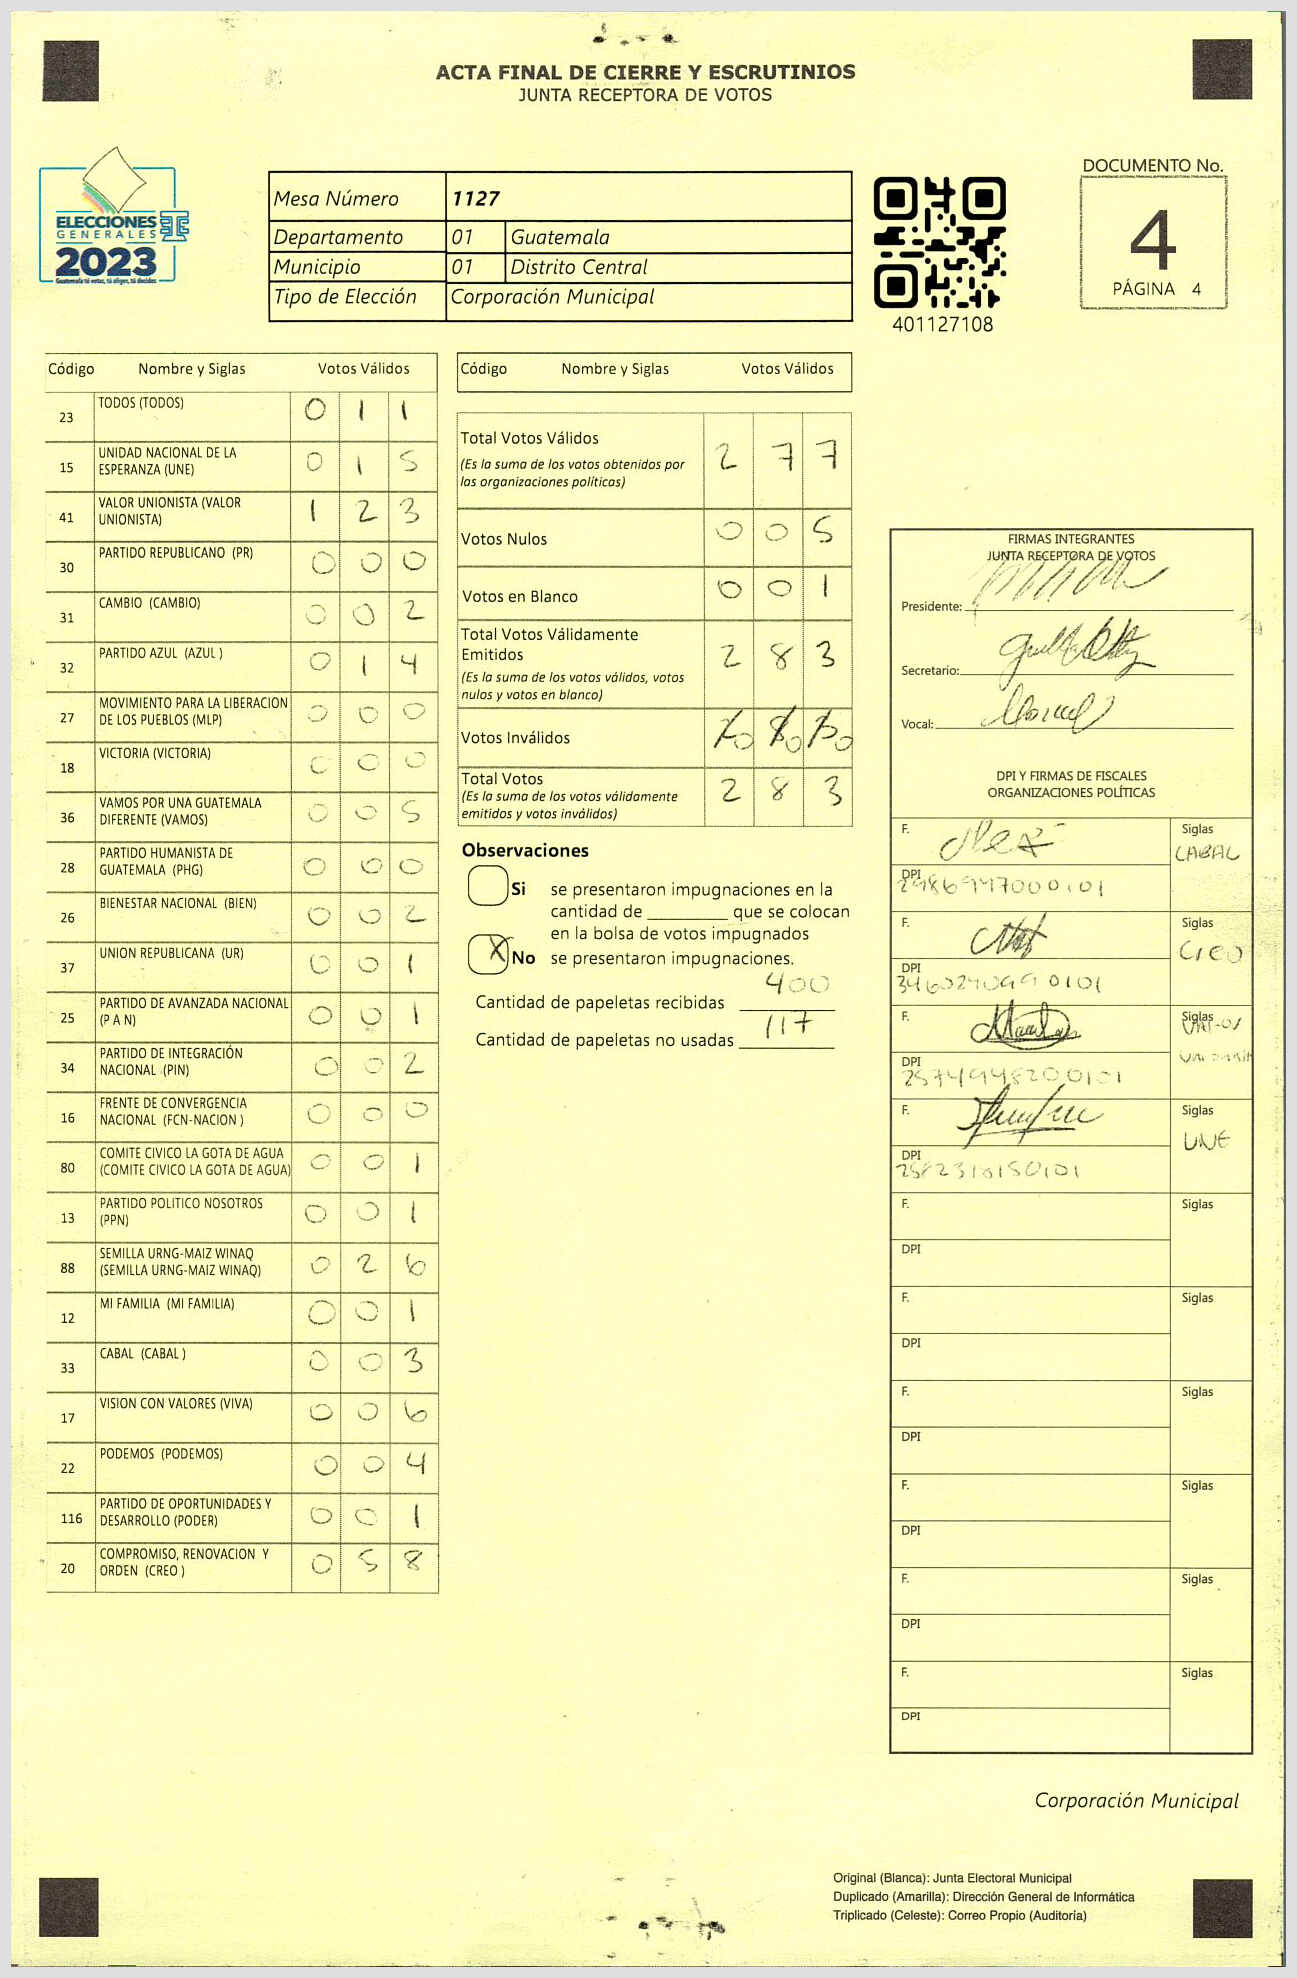 ACTA FINAL DE CIERRE Y ESCRUTINIOS
JUNTA RECEPTORA DE VOTOS
ELECCIONES
GENERALES
2023
Guatemala tú votas, tú eliges, tú decides
Mesa Número 1127
Departamento 01 Guatemala
Municipio 01 Distrito Central
Tipo de Elección Corporación Municipal
401127108
DOCUMENTO No.
4
PÁGINA 4
Código Nombre y Siglas Votos Válidos
23 TODOS (TODOS) 0 1 1
15 UNIDAD NACIONAL DE LA ESPERANZA (UNE) 0 1 5
41 VALOR UNIONISTA (VALOR UNIONISTA) 1 2 3
30 PARTIDO REPUBLICANO (PR) 0 0 0
31 CAMBIO (CAMBIO) 0 0 2
32 PARTIDO AZUL (AZUL ) 0 1 4
27 MOVIMIENTO PARA LA LIBERACION DE LOS PUEBLOS (MLP) 0 0 0
18 VICTORIA (VICTORIA) 0 0 0
36 VAMOS POR UNA GUATEMALA DIFERENTE (VAMOS) 0 0 5
28 PARTIDO HUMANISTA DE GUATEMALA (PHG) 0 0 0
26 BIENESTAR NACIONAL (BIEN) 0 0 2
37 UNION REPUBLICANA (UR) 0 0 1
25 PARTIDO DE AVANZADA NACIONAL (P A N) 0 0 1
34 PARTIDO DE INTEGRACIÓN NACIONAL (PIN) 0 0 2
16 FRENTE DE CONVERGENCIA NACIONAL (FCN-NACION ) 0 0 0
80 COMITE CIVICO LA GOTA DE AGUA (COMITE CIVICO LA GOTA DE AGUA) 0 0 1
13 PARTIDO POLITICO NOSOTROS (PPN) 0 0 1
88 SEMILLA URNG-MAIZ WINAQ (SEMILLA URNG-MAIZ WINAQ) 0 2 6
12 MI FAMILIA (MI FAMILIA) 0 0 1
33 CABAL (CABAL ) 0 0 3
17 VISION CON VALORES (VIVA) 0 0 6
22 PODEMOS (PODEMOS) 0 0 4
116 PARTIDO DE OPORTUNIDADES Y DESARROLLO (PODER) 0 0 1
20 COMPROMISO, RENOVACION Y ORDEN (CREO ) 0 5 8
Código Nombre y Siglas Votos Válidos
Total Votos Válidos 2 7 7
(Es la suma de los votos obtenidos por
las organizaciones políticas)
Votos Nulos 0 0 5
Votos en Blanco 0 0 1
Total Votos Válidamente
Emitidos 2 8 3
(Es la suma de los votos válidos, votos
nulos y votos en blanco)
Votos Inválidos 0 0 0
Total Votos 2 8 3
(Es la suma de los votos válidamente
emitidos y votos inválidos)
Observaciones
Si se presentaron impugnaciones en la
cantidad de ________ que se colocan
en la bolsa de votos impugnados
X No se presentaron impugnaciones.
Cantidad de papeletas recibidas 400
Cantidad de papeletas no usadas 117
FIRMAS INTEGRANTES
JUNTA RECEPTORA DE VOTOS
Presidente:
Secretario:
Vocal:
DPI Y FIRMAS DE FISCALES
ORGANIZACIONES POLÍTICAS
F. Siglas
CABAL
DPI
F. Siglas
CREO
DPI
F. Siglas
DPI
F. Siglas
UNE
DPI
F. Siglas
DPI
F. Siglas
DPI
F. Siglas
DPI
F. Siglas
DPI
F. Siglas
DPI
F. Siglas
DPI
Corporación Municipal
Original (Blanca): Junta Electoral Municipal
Duplicado (Amarilla): Dirección General de Informática
Triplicado (Celeste): Correo Propio (Auditoría)